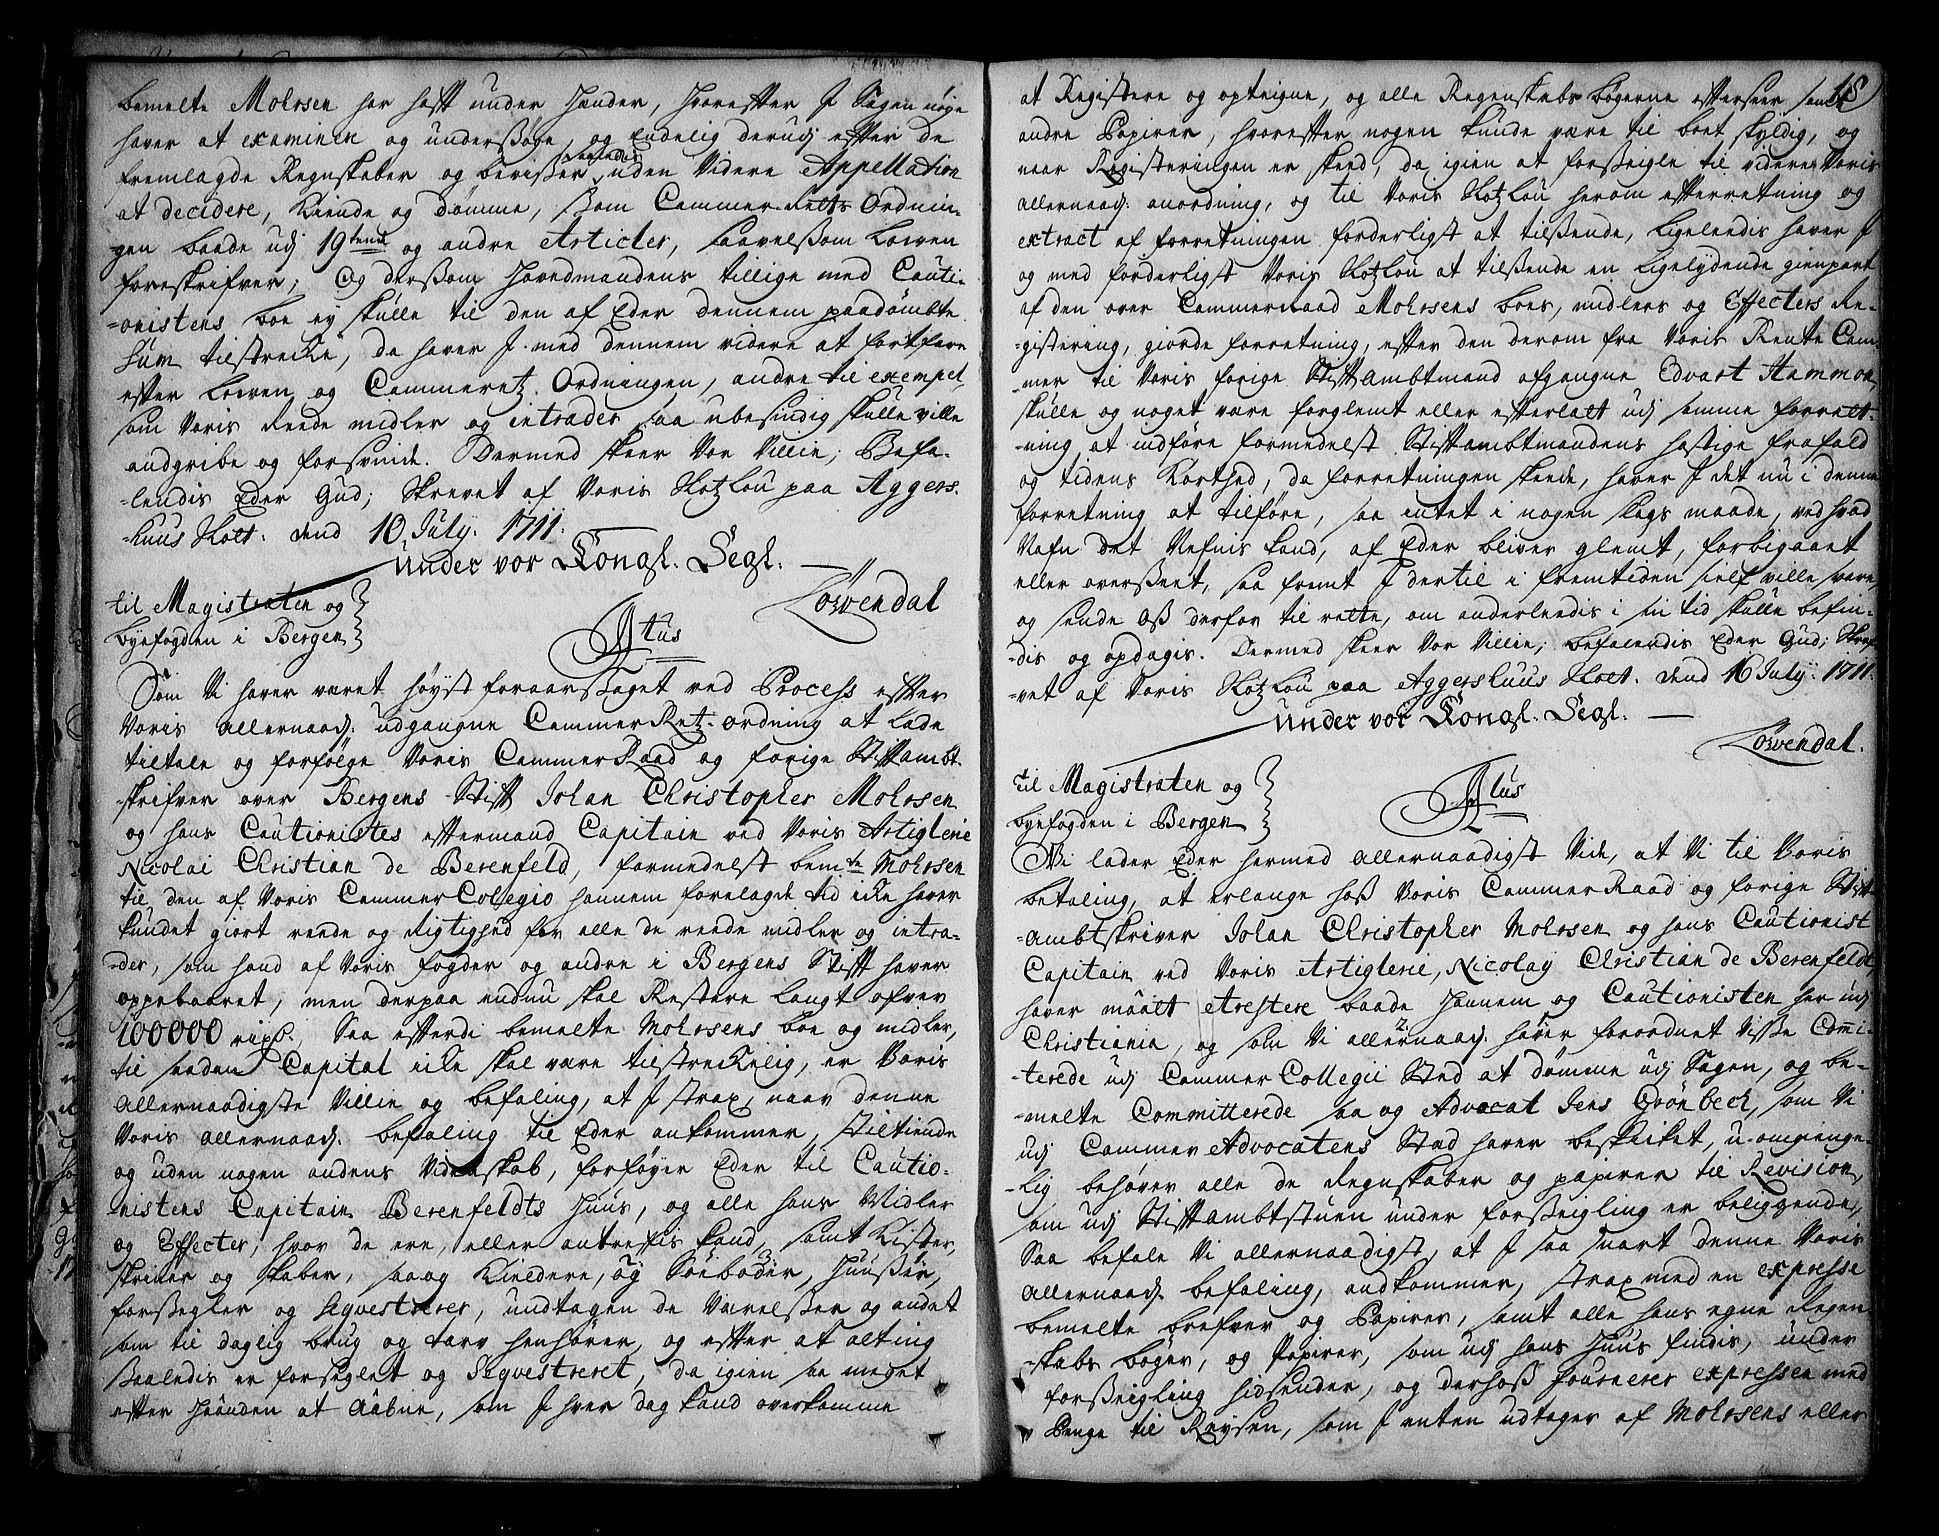 bemelte Mohrsen har hafft under Hænder, Hvorefter I Sagen nøye
haver at examinere og undersøge, og Endelig derudj efter de
fremlagde Regnskaber og bevisser saaledis uden Videre Appellation
at decidere, Kiende og dømme, som Cammer Retts Ordnin-
gen baade udj 19tende og andre Articler, saavelsom Lowen
foreskrifver; Og dersom Hovedmandens tillige med Cauti-
-onistens boe ey skulle til den af Eder dennem paadømbte
Sum tilstrecke, da haver I med dennem videre at fortfare
efter Lowen og Cammeretz Ordningen, andre til exempel,
som Voris Reede midler og intrader saa ubesindig skulle ville
andgribe og forsvinde. Dermed skeer Vor Villie; Befa-
-lendis Eder Gud; Skrevet af Voris Slotzlou paa Aggers-
-huus Slott. dend 10 July. 1711.
under vor Kongl. Segl.
Löwendal
til Magistraten og
byefogden i Bergen
Atus
Som Vi haver været høyst foraarsaget ved Process efter
Voris allernaadj. udgangne CammerRetz-ordning at lade
tiltale og forfølge Voris CammerRaad og forige Stiftambt-
-skrifver over Bergens Stift Johan Christopher Mohrsen
og hans Cautionistes eftermand Capitain ved Voris Artiglerie
Nicolai Christian de Berenfeld, formedelst bemte Mohrsen
til den af Voris CammerCollegio hannem forelagde tid icke haver
kundet giort reede og Rigtighed for alle de reede midler og intra-
-der, som hand af Voris fogder og andre i Bergens Stift haver
oppebaaret, men derpaa endnu skal Restere langt ofver
100000 rixd. Saa efterdi bemelte Mohrsens boe og midler,
til saadan Capital icke skal være tilstreckelig, er Voris
Allernaadigste Villie og befaling, at I strax, naar denne
Voris allernaadj. befaling til Eder ankommer, stiltiende
og uden nogen andens Videnskab, forføyer Eder til Cautio-
nistens Capitain Berenfeldts Huus, og alle hans Midler
og Effecter, hvor de ere, eller antreffis kand, samt Kister,
skriner og skaber, saa og Kieldere, og Søeboder, Huusser,
forsegler og Seqvestrerer, undtagen de Værelsser og andet
som til daglig brug og tarv henhører, og efter at alting
saaledis er forseglet og Seqvestreret, da igien saa meget
efter Haanden at Aabne, som I hver dag kand overkomme
18
at Registere og opteigne, og alle Regenskabs bøgerne efterseer samt
andre Papirer, hvorefter nogen kunde være til boet skyldig, og
naar Registeringen er skeed, da igien at forseigle til videre Voris
allernaadj. anordning, og til Voris Slotzlou herom efterretning og
extract af forretningen forderligst at tilsende, Ligeleedis haver I
og med forderligst Voris Slotzlou at tilsende en ligelydende gienpart
af den over Cammerraad Mohrsens boes, midlers og Effecters Re-
-gistering, giorde forretning, efter den derom fra Voris Rente Cam-
-mer til Voris forige Stiftambtmand afgangne Edvart Hammon,
skulle og noget være forglemt eller efterlatt udj samme forrett-
-ning at indføre formedelst Stiftambtmandens hastige frafald
og tidens Korthed, da forretningen skeede, haver I det nu i denne
forretning at tilføre, saa intet i nogen slags maade, ved hvad
Nafn det Nefnis kand, af Eder bliver glemt, forbigaaet
eller oversseet, saa fremt I dertil i fremtiden self ville svare,
og stande Oss derfor til rette, om anderleedis i sin tid skulle befin-
-dis og opdagis. Dermed skeer Vor Villie; befalendis Eder Gud; Skre-
-vet af Voris Slotzlou paa Aggershuus Slott. dend 16 July. 1711.
under vor Kongl. Segl.
Löwendal.
til Magistraten og
byefogden i Bergen
Atus
Vi lader Eder hermed Allernaadigst Vide, at Vi til Voris
betaling, at erlange hoss Voris Cammer Raad og forige Stift-
-ambtskriver Johan Christopher Mohrsen og hans Cautionist
Capitain ved Voris Artiglerie, Nicolay Christian de Berenfeldt
haver maatt Arestere baade Hannem og Cautionisten her udj
Christiania, og som Vi allernaadj. haver forordnet Visse Comi-
-terede udj Cammer Collegii Sted at dømme udj Sagen, og be-
-melte Committerede saa og Advocat Jens Grönbeck, som Vi
udj Cammer Advocatens Stad haver beskicket, u-omgienge-
-lig behøver alle de Regnskaber og papirer til Revision,
som udj Stiftambtstuen under forseigling er beliggende,
Saa befale Vi allernaadigst, at I saa snart denne Voris
Allernaadj. befaling, andkommer, strax med en expresse
bemelte brefver og Papirer, samt alle hans egne Regen
-skabs bøger, og Papirer, som udj hans Huus findis, under
forseigling hidsender, og derhoss fournerer expressen med
Penge til Reysen, som I enten udtager af Mohrsens eller